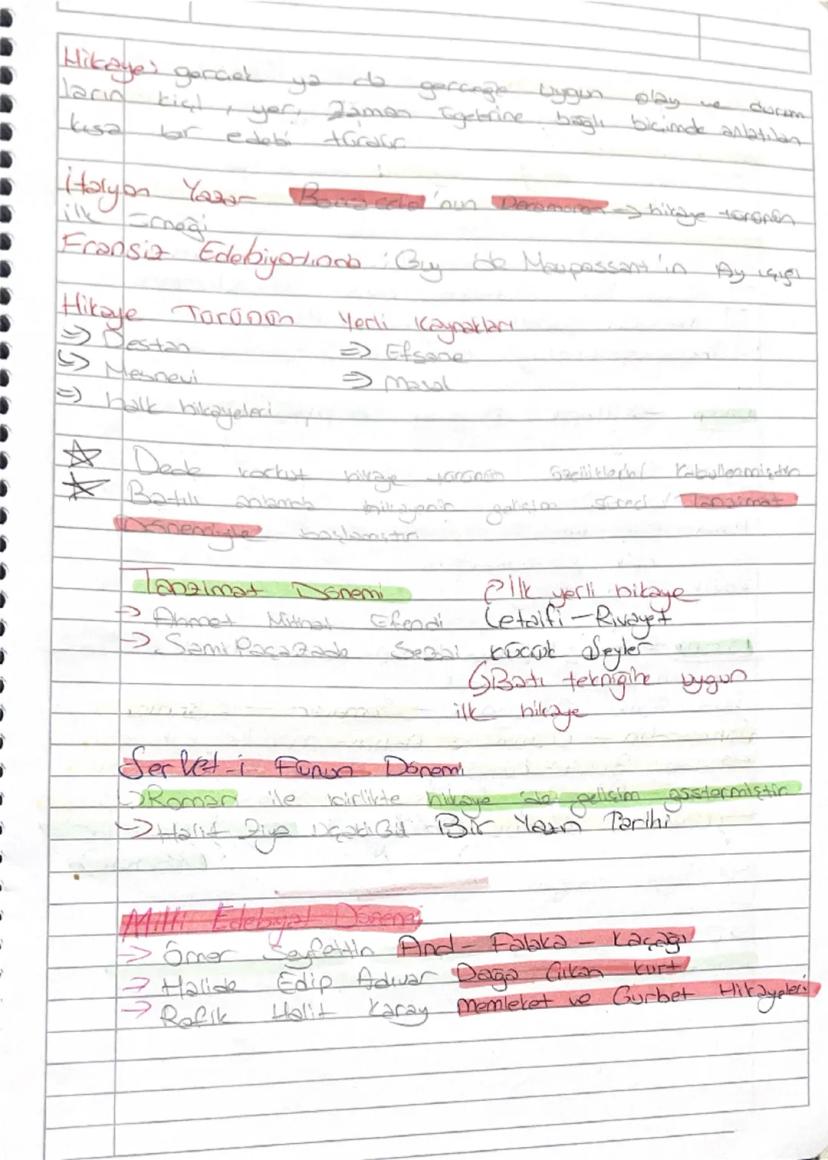 Hikaye: gerçek ya da gerçeğe uygun olay ve durum
ların kişi, yer, zaman ögelerine bağlı biçimde anlatılan
kısa bir edebi türdür
İtalyan Yazar Boccaccio'nun Decameron ⇒ hikaye türünün
ilk örneği
Fransız Edebiyatında: Guy de Maupassant'ın Ay ışığı
Hikaye Türünün Yerli Kaynakları
⇒ Destan ⇒ Efsane
↪ Mesnevi ⇒ Masal
⇒ halk hikayeleri
☆ Dede korkut hikaye türünün özelliklerini kabullenmiştir
☆ Batılı anlamda hikayenin gelişim süreci Tanzimat
Dönemiyle başlamıştır.
Tanzimat Dönemi İlk yerli hikaye
→ Ahmet Mithat Efendi Letaifi-Rivayet
→ SamiPaşazade Sezai küçük Şeyler
↪ Batı tekniğine uygun
ilk hikaye
Servet-i Fünun Dönemi
↪ Roman ile birlikte hikaye de gelişim göstermiştir
↪ Halit Ziya Uşaklıgil Bir Yazın Tarihi
Milli Edebiyat Dönemi
→ Ömer Seyfettin And-Falaka-kaçağı
→ Halide Edip Adıvar Dağa Çıkan kurt
→ Refik Halit Karay Memleket ve Gurbet Hikayeleri